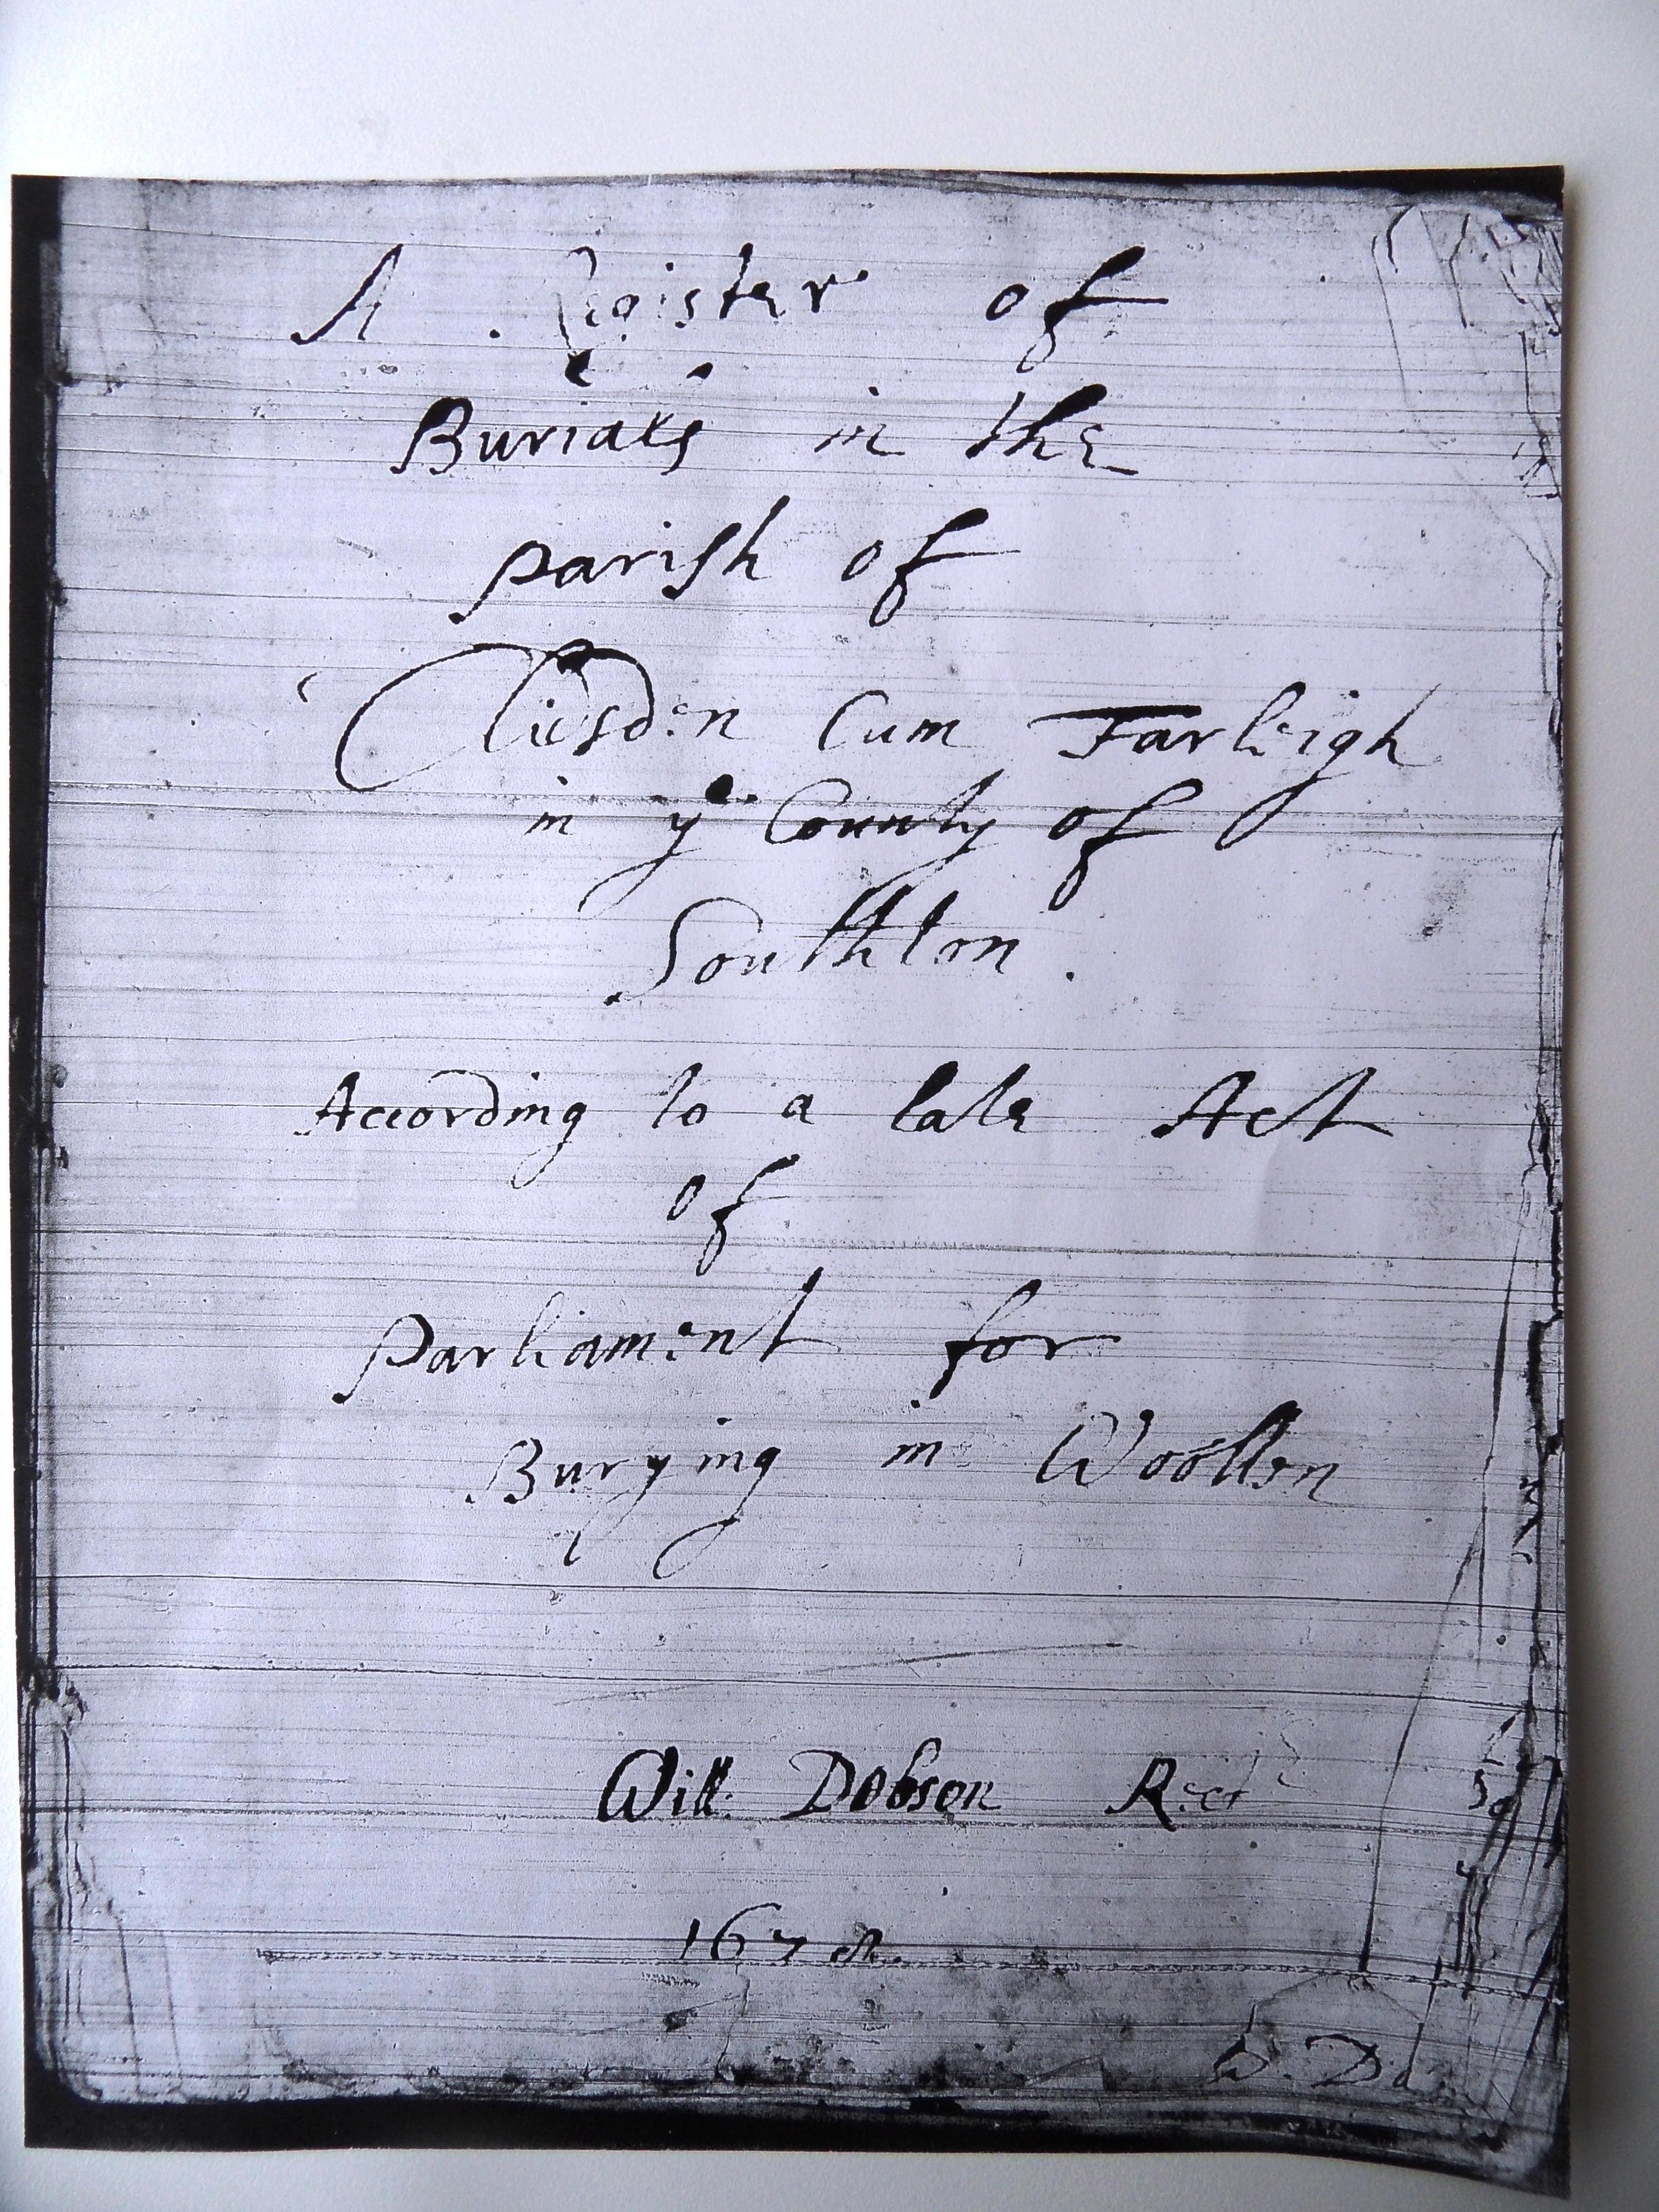 A Register of
Burialls in the
parish of
Cliesden Cum Farleigh
in ye County of
Southton.
According to a late Act
of
Parliament for
Burying in Woollen
Will: Dobson Rectr
1678
W. D